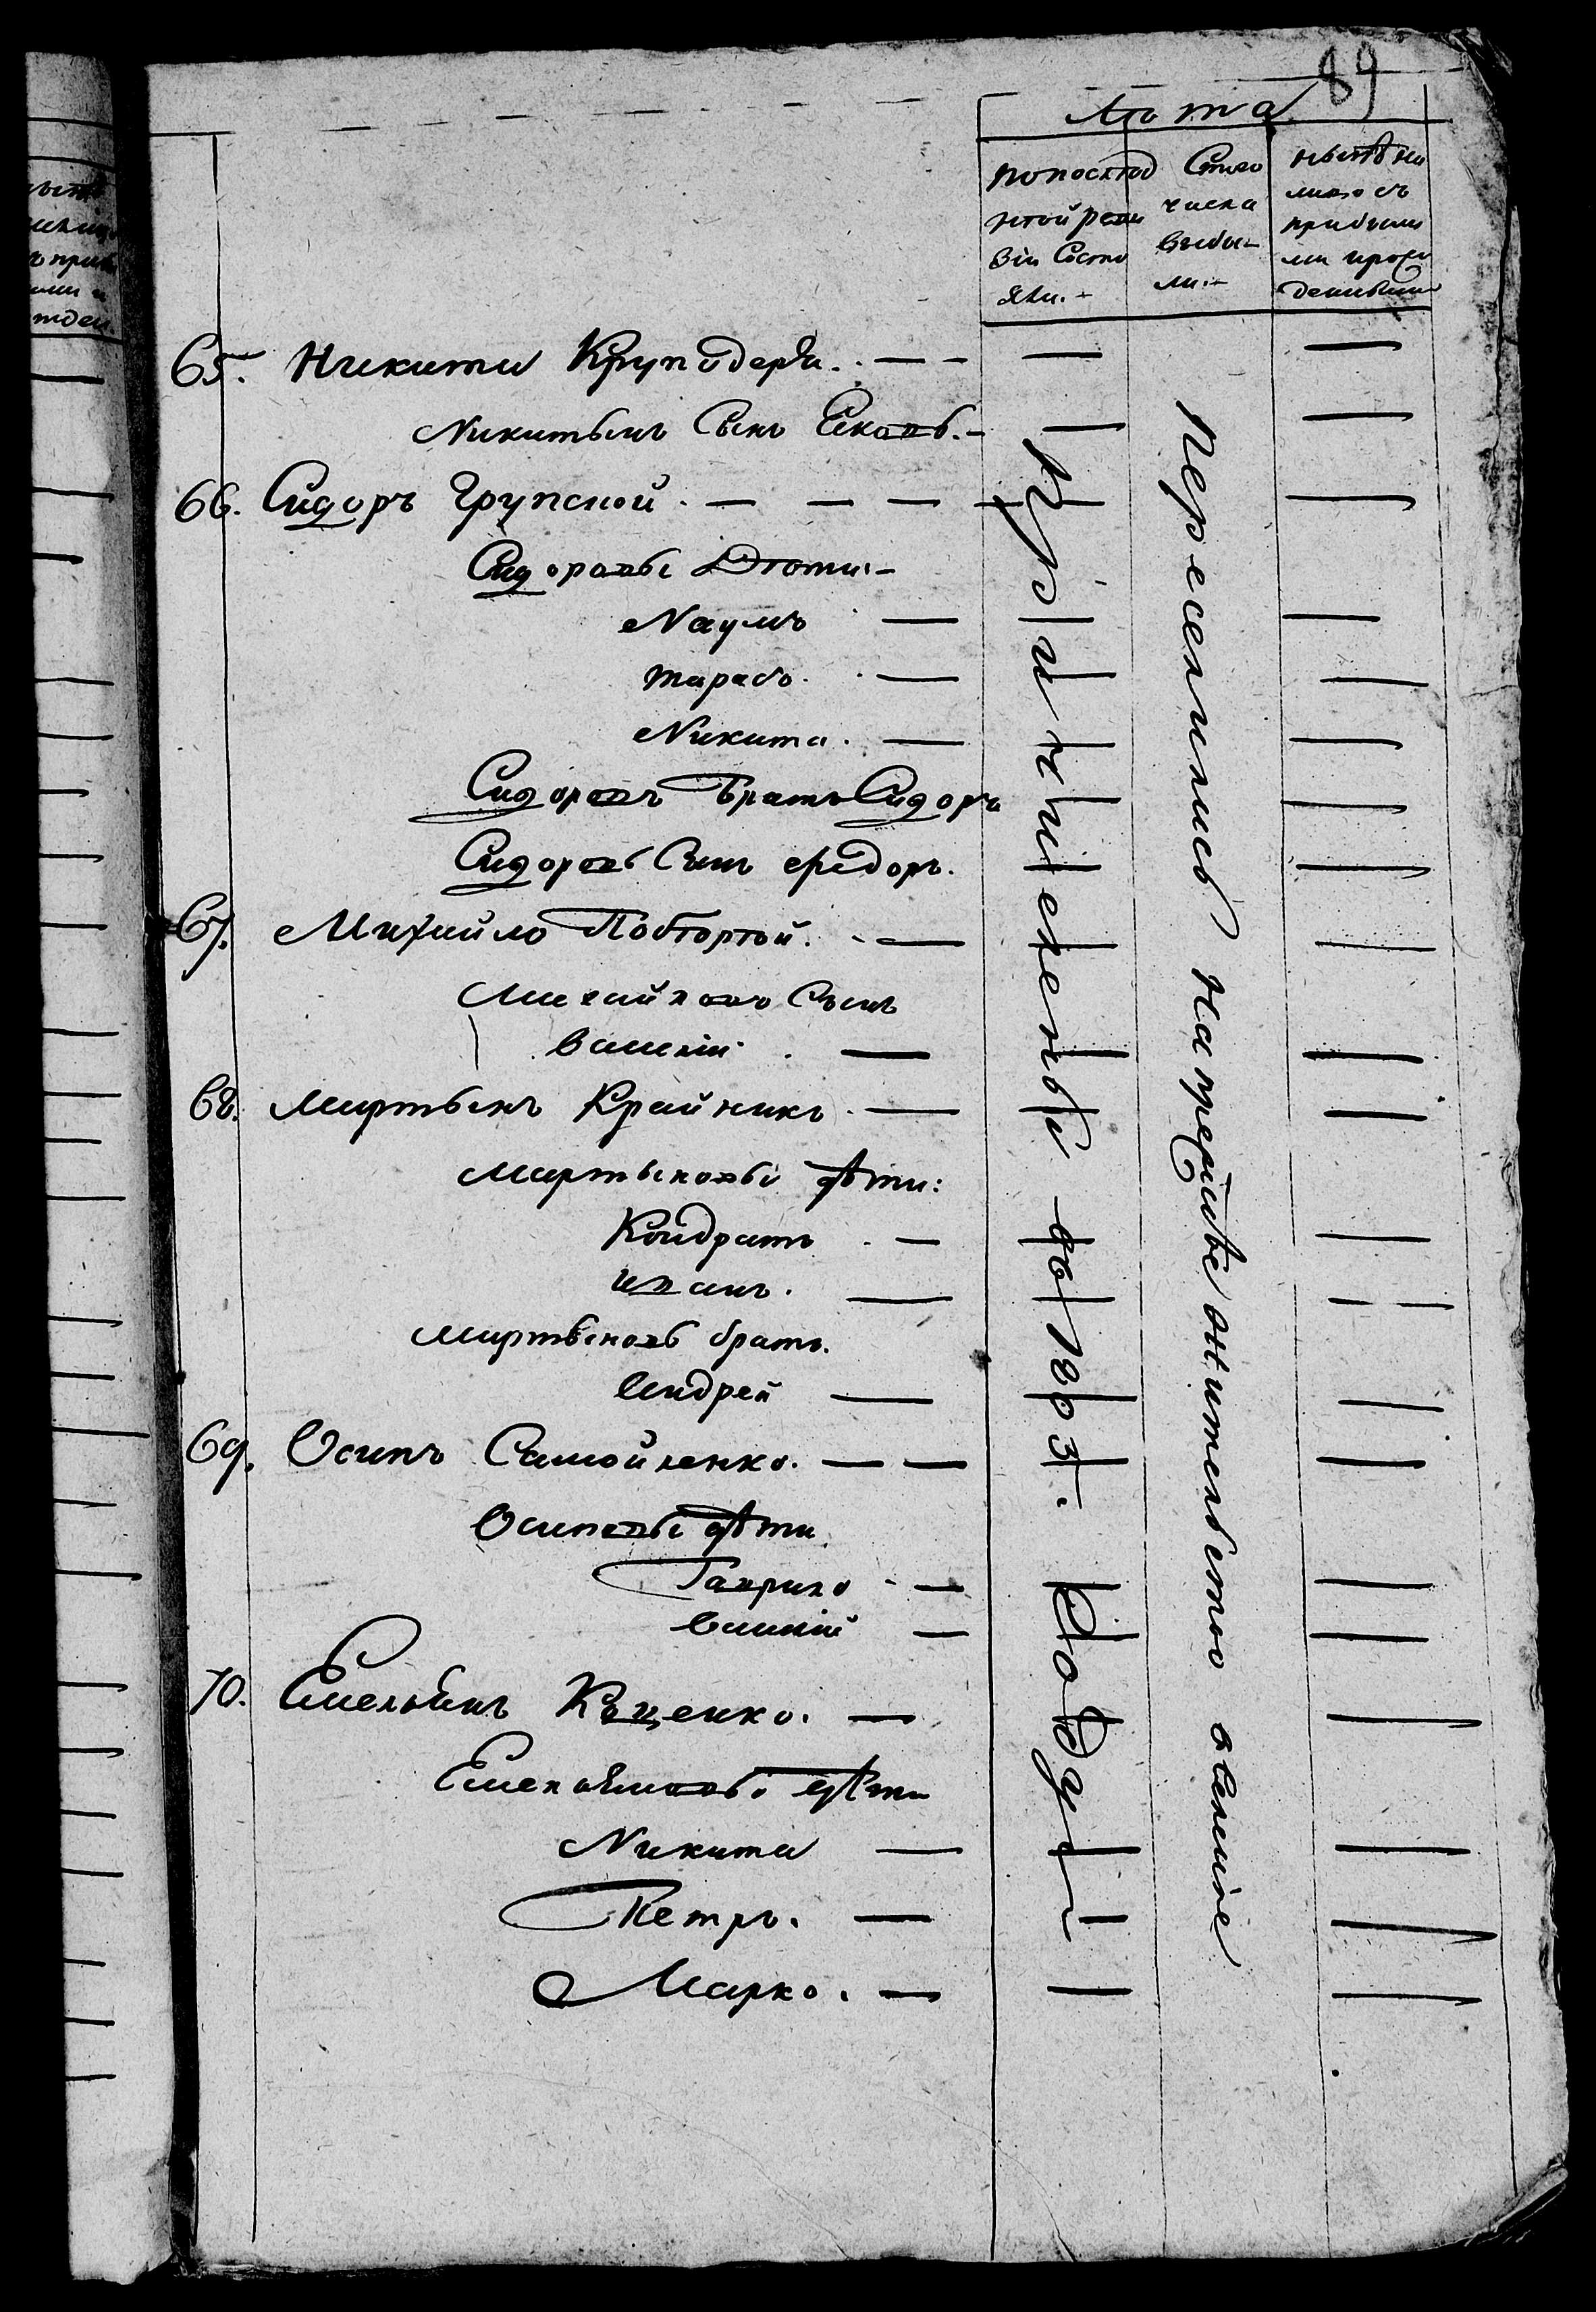 89
Лѣта
попослѣд
нѣйреви
зіи Состо
яли.
Стого
числа
выбы-
ли.-
нынѣ на
лицо съ
прибылы
ми ирож
денными
65. Никита Крупидеря.
Никитынъ Сынъ Яковъ.
66. Сидоръ Грунской.
Сидоровы Дѣти
Наумъ
Тарасъ.
Никита.
Сидоровъ Братъ Сидоръ
Сидоровъ Сынъ Федоръ.
67. Михайло
Михайловъ Сынъ
Василій
68. Мартынъ Крайникъ
Мартыновы дѣти:
Кондратъ
Иванъ.
Мартыновъ братъ.
Андрей
69. Осипъ Самойленко.
Осиповы дѣти
Гаврило
Василій
70. Емельянъ Куценко.
Емельяновы дѣти
Никита
Петръ.
Марко.
Причислены въ 1803. Году
Переселились на жительство